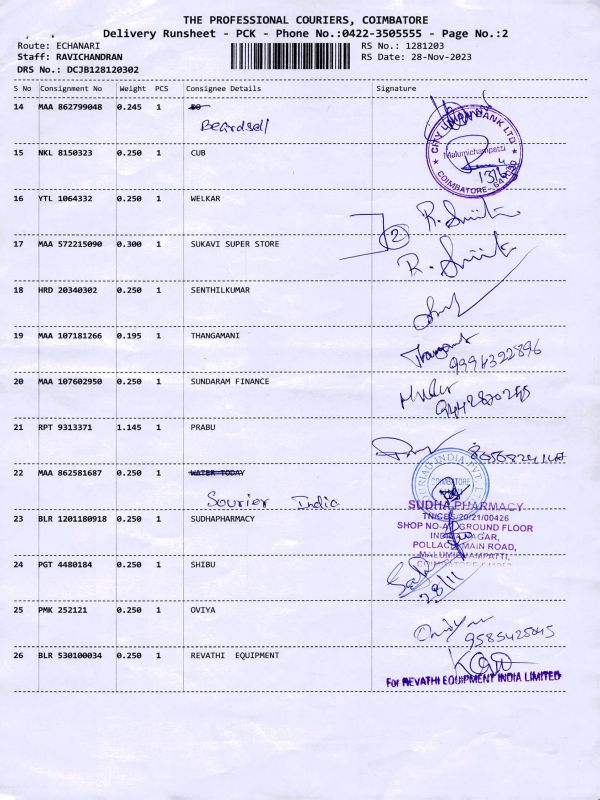 THE PROFESSIONAL COURIERS, COIMBATORE
Delivery Runsheet - PCK - Phone No.:0422-3505555 - Page No.:2
Route: ECHANARI RS No.: 1281203
Staff: RAVICHANDRAN RS Date: 28-Nov-2023
DRS No.: DCJB128120302
S No Consignment No Weight PCS Consignee Details Signature
14 MAA 862799048 0.245 1
Beardsell
CITY UNION BANK LTD
Malumichampatti
COIMBATORE
15 NKL 8150323 0.250 1 CUB
16 YTL 1064332 0.250 1 WELKAR R. Smitha
2
17 MAA 572215090 0.300 1 SUKAVI SUPER STORE R. Smitha
18 HRD 20340302 0.250 1 SENTHILKUMAR
19 MAA 107181266 0.195 1 THANGAMANI
9994322896
20 MAA 107602950 0.250 1 SUNDARAM FINANCE
21 RPT 9313371 1.145 1 PRABU
22 MAA 862581687 0.250 1 WATER TODAY
Sourier India
SUDHA PHARMACY
23 BLR 1201180918 0.250 1 SUDHAPHARMACY
GROUND FLOOR
MAIN ROAD,
MALUMICHAMPATTI,
24 PGT 4480184 0.250 1 SHIBU
28/11
25 PMK 252121 0.250 1 OVIYA
26 BLR 530100034 0.250 1 REVATHI EQUIPMENT
For REVATHI EQUIPMENT INDIA LIMITED